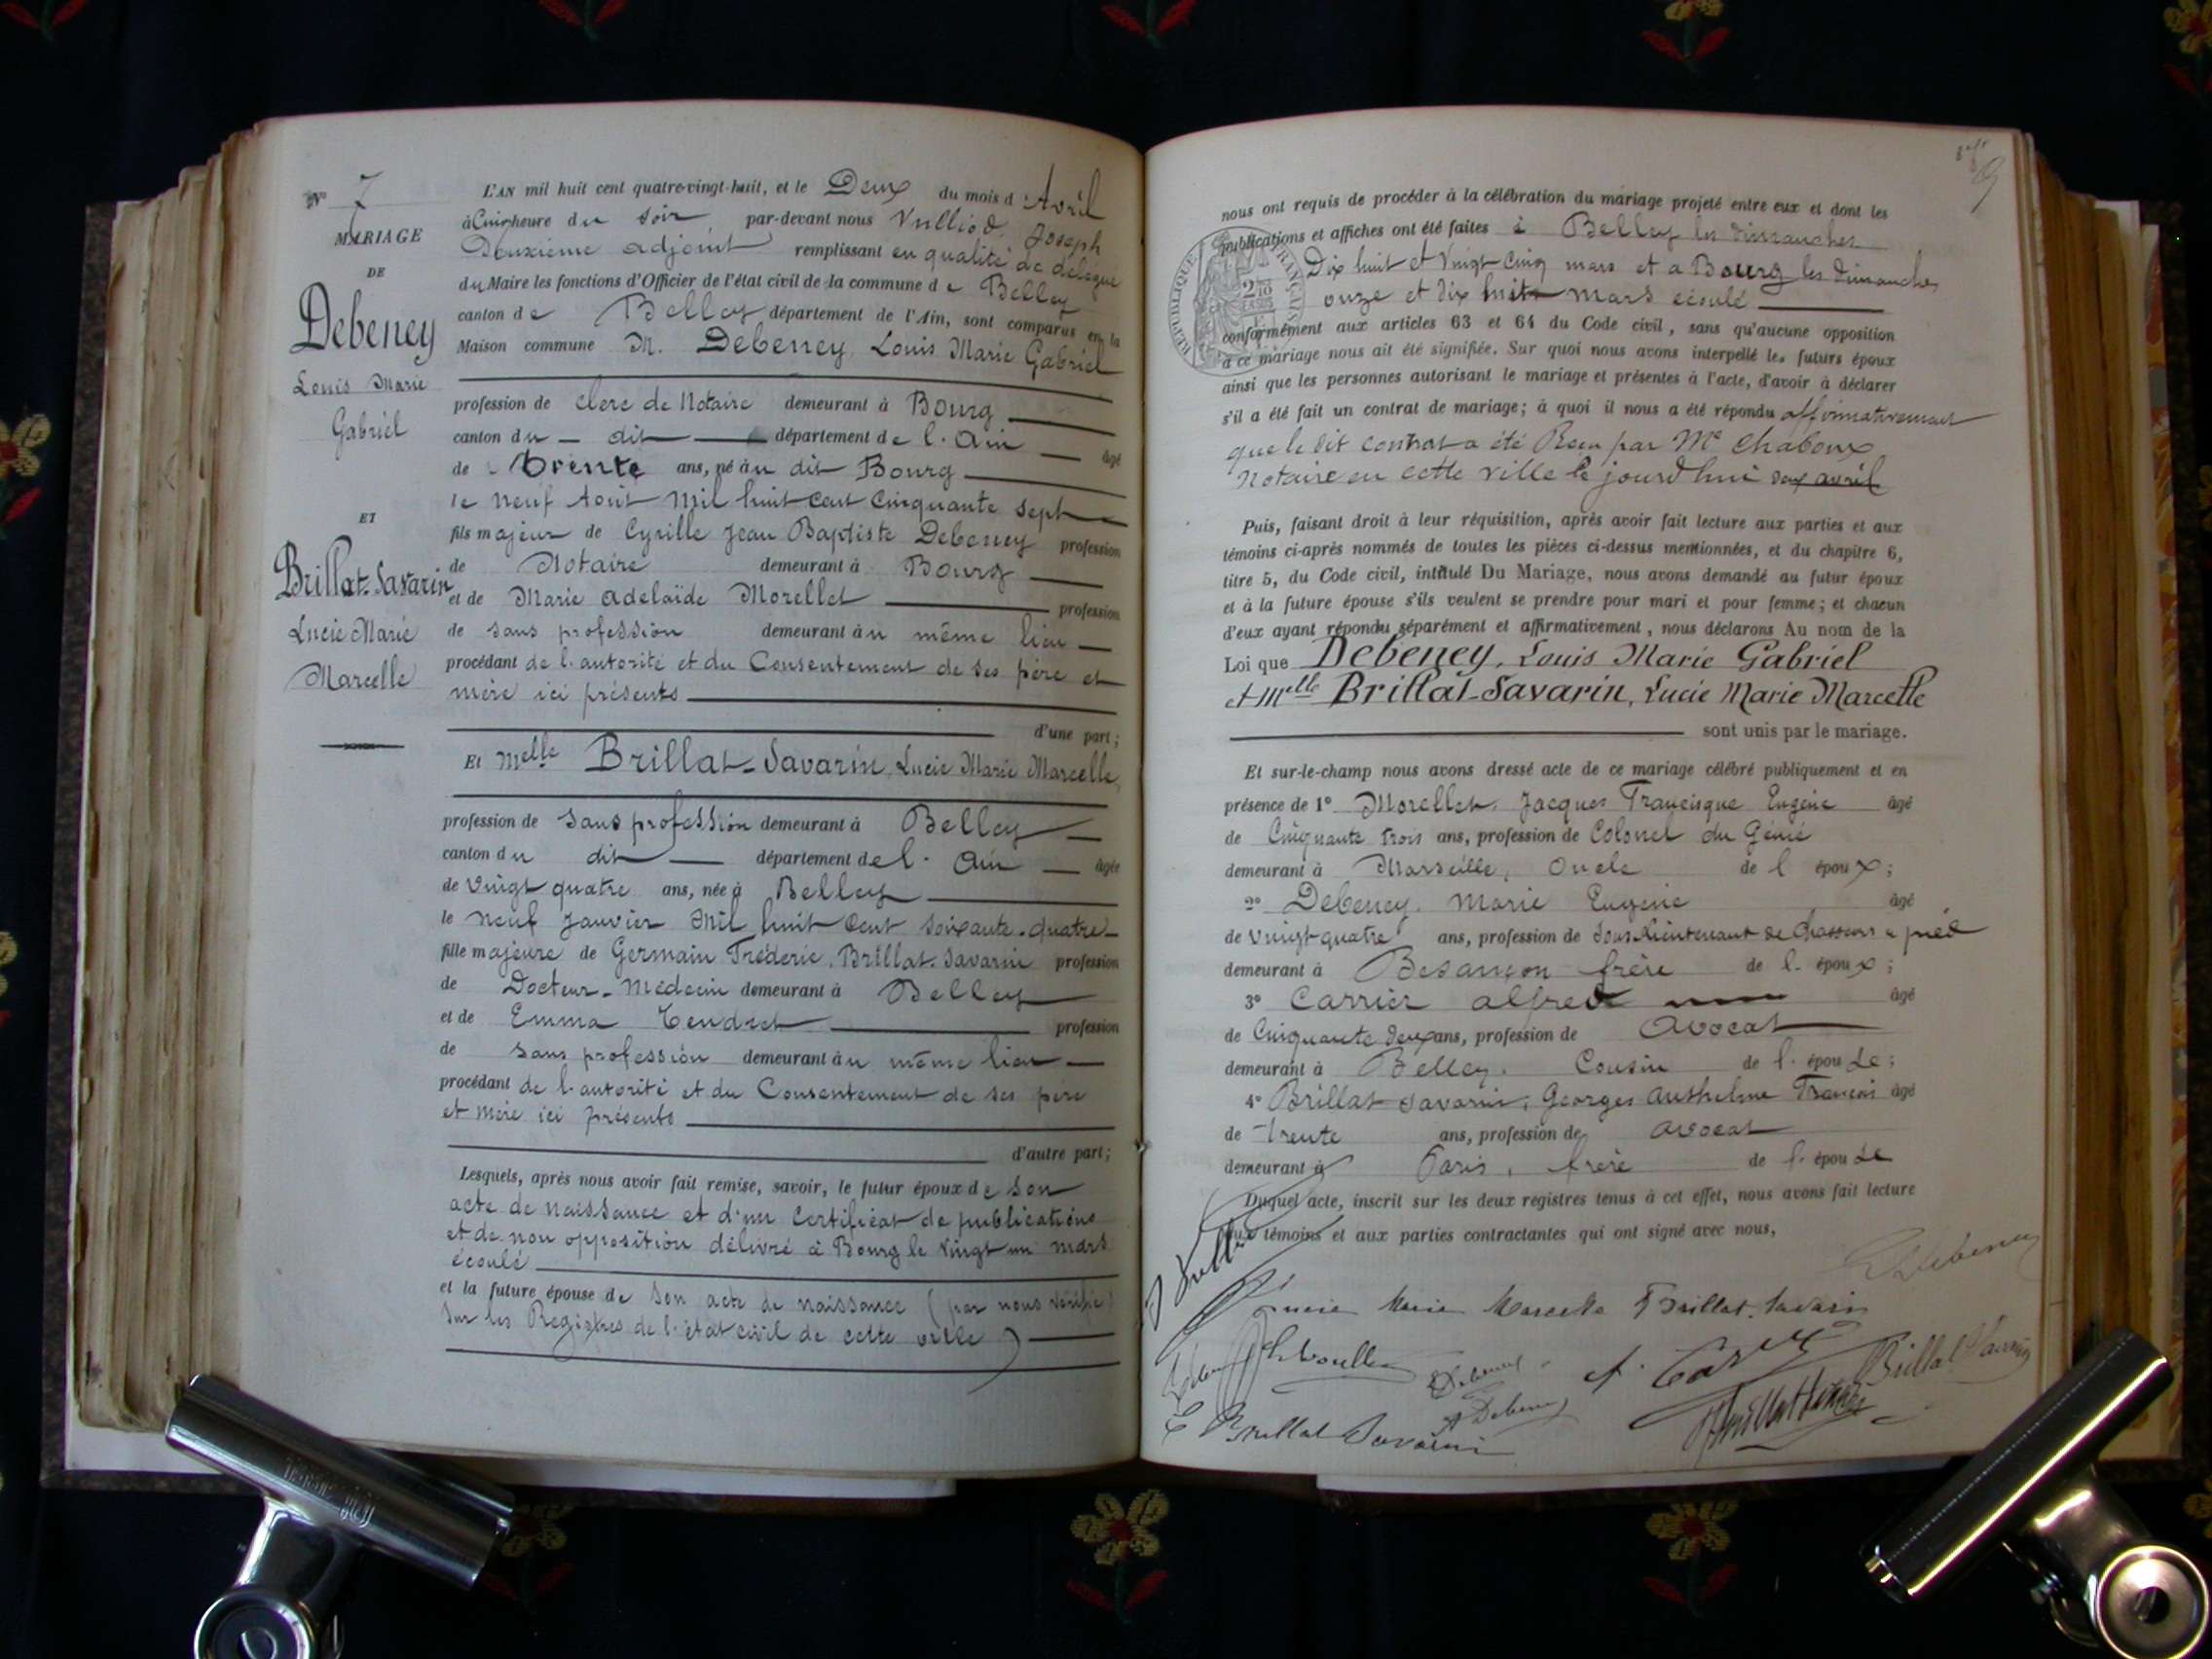 N° 7
MARIAGE
DE
Debeney
Louis Marie
Gabriel
ET
Brillat-Savarin
Lucie Marie
Marcelle
L'AN mil huit cent quatre-vingt-huit, et le Deux du mois d Avril
à Cinq heure du Soir par-devant nous Vulliod, Joseph
Deuxième adjoint remplissant en qualité de délégué
du Maire les fonctions d'Officier de l'état civil de la commune de Belley
canton de Belley département de l'Ain, sont comparus en la
Maison commune M. Debeney, Louis Marie Gabriel
profession de clerc de Notaire demeurant à Bourg
canton du dit département de l'Ain âgé
de Trente ans, né au dit Bourg
le neuf Août mil huit cent Cinquante sept
fils majeur de Cyrille Jean Baptiste Debeney profession
de Notaire demeurant à Bourg
et de Marie Adelaïde Morellet profession
de sans profession demeurant au même lieu
procédant de l'autorité et du Consentement de ses père et
mère ici présents
d'une part;
Et Melle Brillat-Savarin, Lucie Marie Marcelle,
profession de sans profession demeurant à Belley
canton du dit département de l'Ain âgée
de Vingt quatre ans, née à Belley
le neuf Janvier Mil huit Cent soixante-quatre
fille majeure de Germain Fréderic Brillat-Savarin profession
de Docteur-Médecin demeurant à Belley
et de Emma Tendret profession
de sans profession demeurant au même lieu
procédant de l'autorité et du Consentement de ses père
et mère ici présents
d'autre part;
Lesquels, après nous avoir fait remise, savoir, le futur époux de son
acte de naissance et d'un Certificat de publications
et de non opposition délivré à Bourg le Vingt un mars
écoulé
et la future épouse de son acte de naissance (par nous vérifié
sur les Registres de l'état civil de cette ville)
nous ont requis de procéder à la célébration du mariage projeté entre eux et dont les
publications et affiches ont été faites à Belley les dimanches
Dix huit et Vingt Cinq mars et a Bourg les dimanches
onze et dix huit mars écoulé
conformément aux articles 63 et 64 du Code civil, sans qu'aucune opposition
à ce mariage nous ait été signifiée. Sur quoi nous avons interpellé les futurs époux
ainsi que les personnes autorisant le mariage et présentes à l'acte, d'avoir à déclarer
s'il a été fait un contrat de mariage; à quoi il nous a été répondu affirmativement
que le dit contrat a été Reçu par Me Chaboux
Notaire en cette ville le jourd'hui deux avril
Puis, faisant droit à leur réquisition, après avoir fait lecture aux parties et aux
témoins ci-après nommés de toutes les pièces ci-dessus mentionnées, et du chapitre 6,
titre 5, du Code civil, intitulé Du Mariage, nous avons demandé au futur époux
et à la future épouse s'ils veulent se prendre pour mari et pour femme; et chacun
d'eux ayant répondu séparément et affirmativement, nous déclarons Au nom de la
Loi que Debeney, Louis Marie Gabriel
et Melle Brillat-Savarin, Lucie Marie Marcelle
sont unis par le mariage.
Et sur-le-champ nous avons dressé acte de ce mariage célébré publiquement et en
présence de 1° Morellet, Jacques Francisque Eugène âgé
de Cinquante trois ans, profession de Colonel du Génie
demeurant à Marseille, Oncle de l époux;
2° Debeney, Marie Eugène âgé
de Vingt quatre ans, profession de Sous Lieutenant de Chasseurs à pied
demeurant à Besançon frère de l'époux;
3° Carrier Alfred âgé
de Cinquante deux ans, profession de Avocat
demeurant à Belley. Cousin de l'épouse;
4° Brillat Savarin, Georges Anthelme François âgé
de Trente ans, profession de avocat
demeurant à Paris, frère de l'épouse
Duquel acte, inscrit sur les deux registres tenus à cet effet, nous avons fait lecture
aux témoins et aux parties contractantes qui ont signé avec nous,
G Debeney
Lucie Marie Marcelle Brillat-Savarin
Debeney
A Debeney
Brillat Savarin
E Brillat Savarin